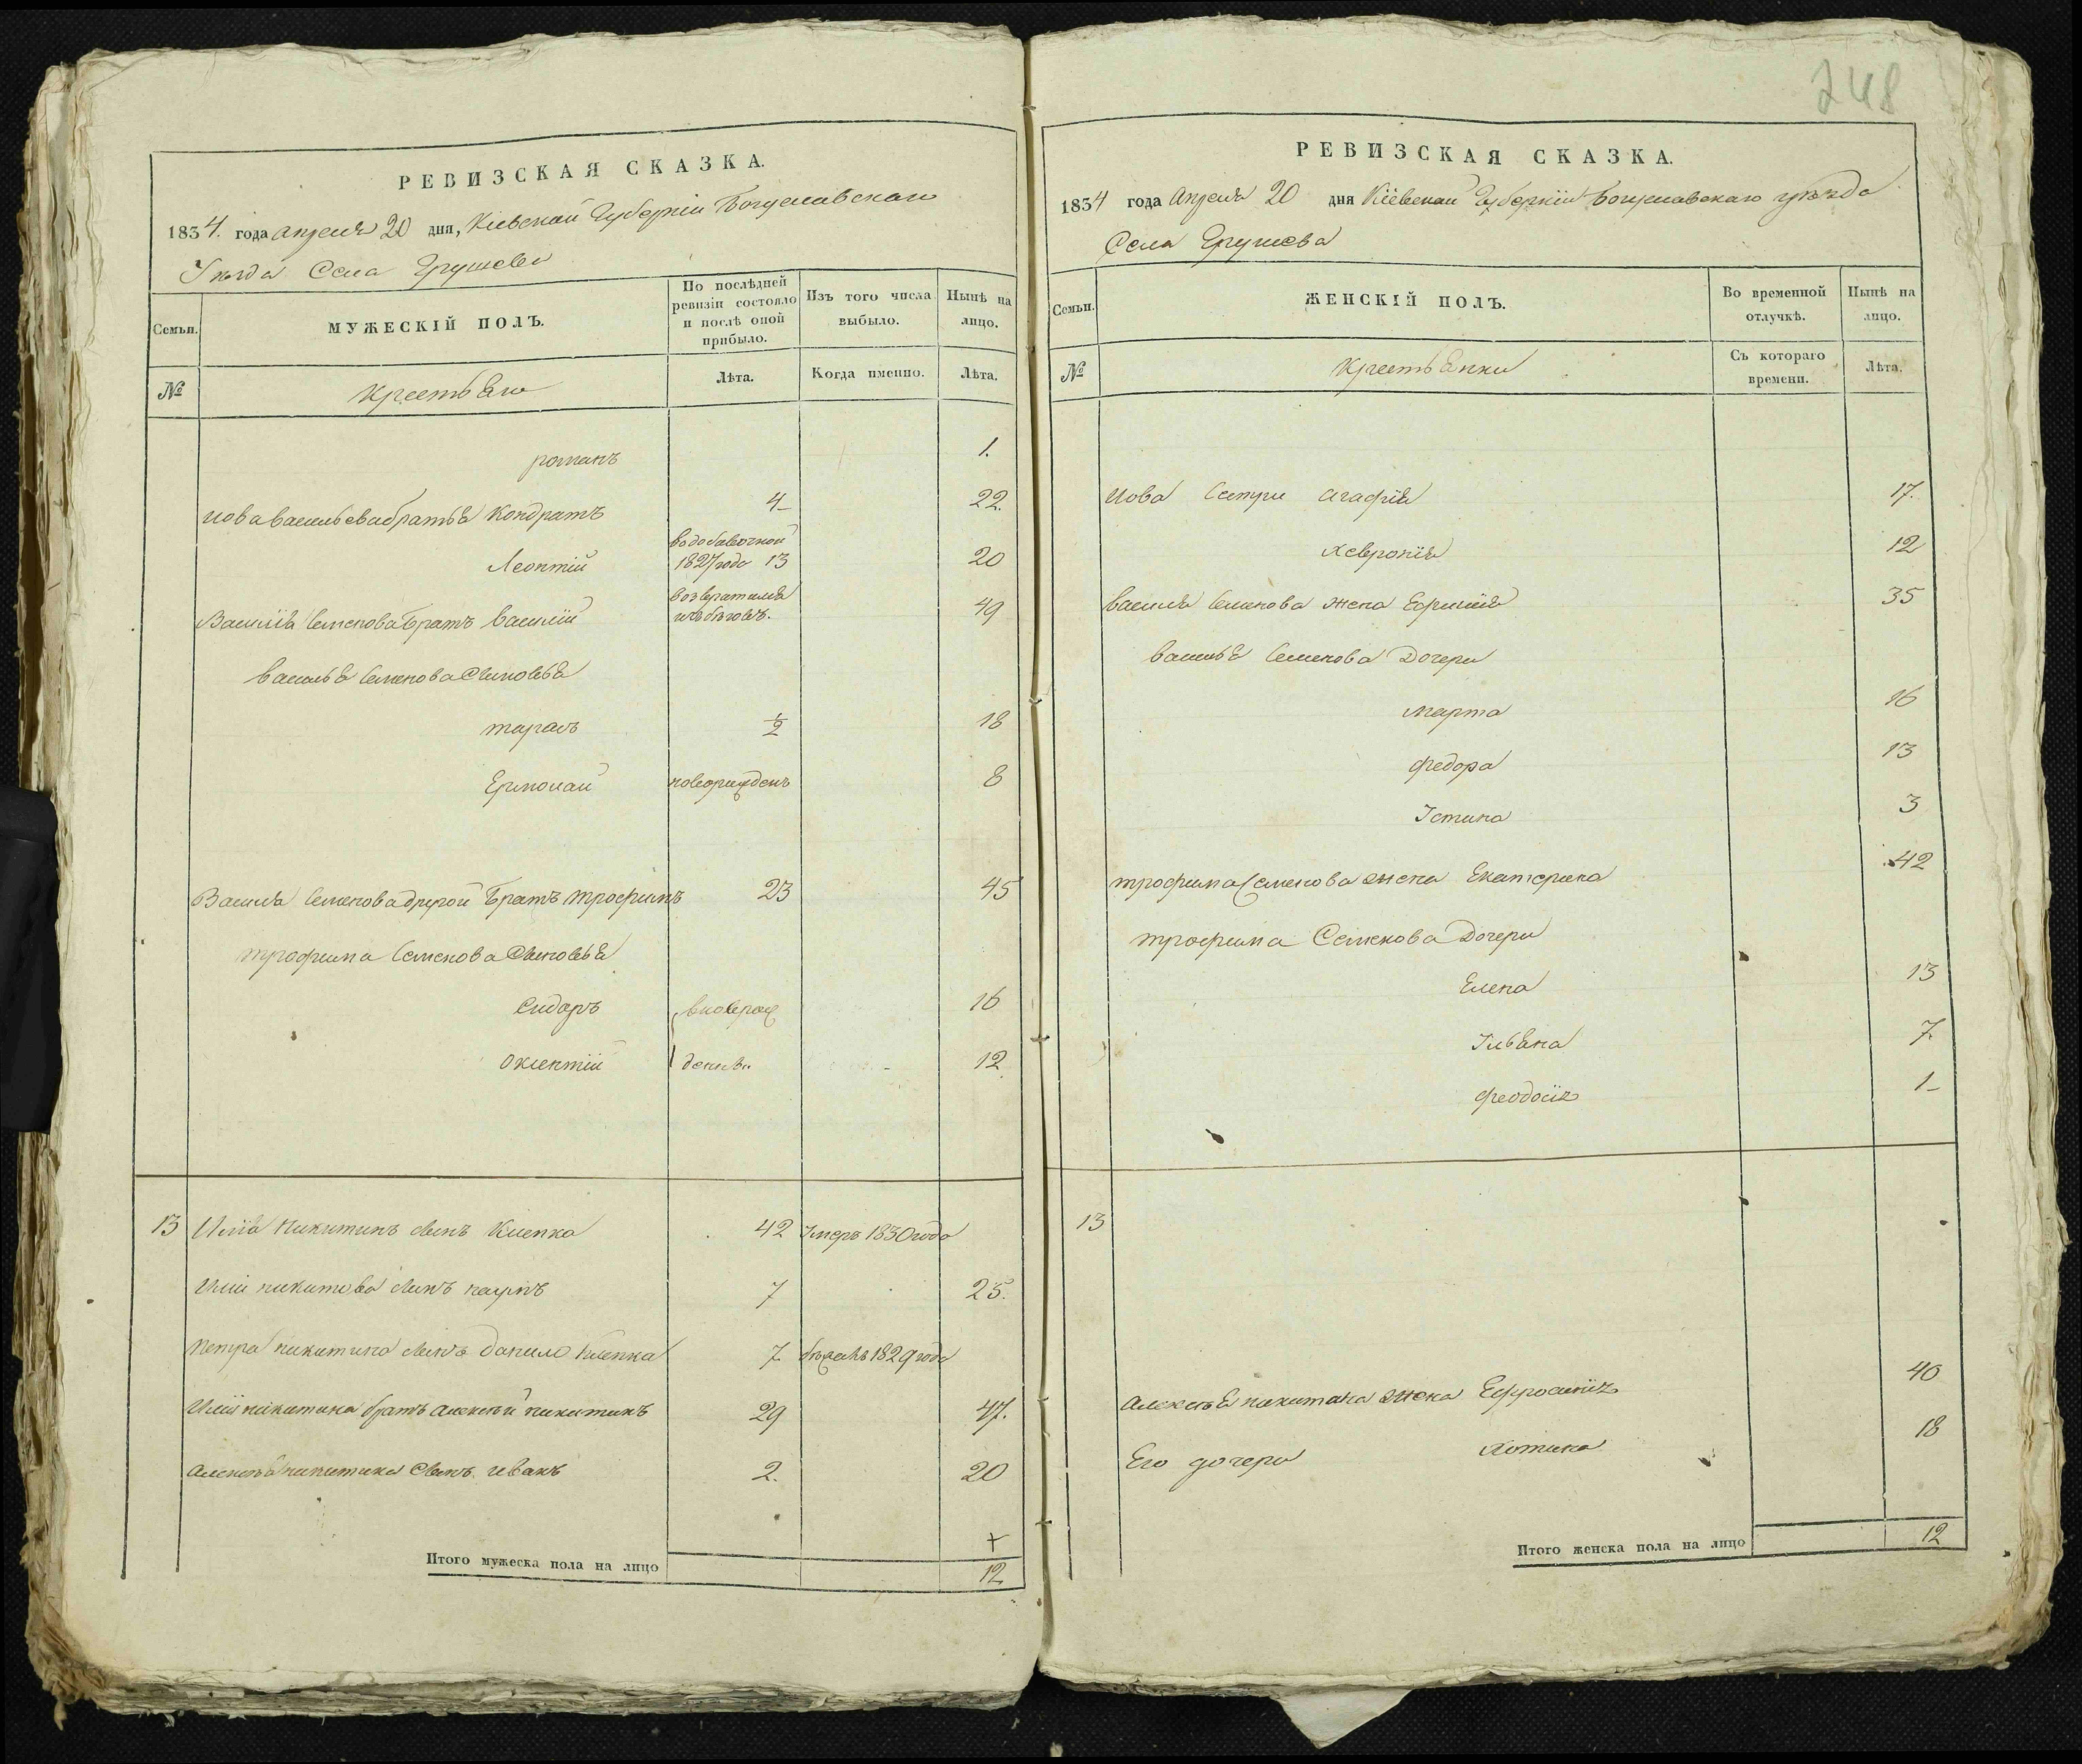 248
РЕВИЗСКАЯ СКАЗКА.
1834. года апреля 20 дня, Кіевской Губерніи Богуславскаго
Уѣзда Села Грушева
Семьи.
МУЖЕСКІЙ ПОЛЪ.
По послѣдней ревизіи состояло и послѣ оной прибыло.
Изъ того числа выбыло.
Нынѣ на лицо.
№
Крестьяне
Лѣта.
Когда именно.
Лѣта.
романъ 1.
иова васильева братья Кондратъ 4 22.
Леонтій в добавочной 1827 года 13 20
Василія Семенова братъ василій возвратился изъ бѣговъ. 49
василья Семенова Сыновья
тарасъ ½ 18
Ермолай новорожденъ 8
Василя Семенова другой братъ трофимъ 23 45
трофима Семенова Сыновья
Сидоръ вноврож 16
Оксентій денны 12
13 Илія Никитинъ сынъ Клепка 42 Умеръ 1830 года
Иліи никитова сынъ 7 25.
Петра никитина сынъ данило Клепка 7 бежалъ 1829 года
Иліи никитина братъ алексѣй никитинъ 29 47.
алексѣя никитина сынъ иванъ 2. 20
Итого мужеска пола на лицо 12
РЕВИЗСКАЯ СКАЗКА.
1834 года апреля 20 дня Кіевской Губерніи Богуславскаго уѣзда
Села Грушева
Семьи.
ЖЕНСКІЙ ПОЛЪ.
Во временной отлучкѣ.
Нынѣ на лицо.
№
Крестьянки
Съ котораго времени.
Лѣта.
Иова Сестры агафія 17.
Хевронія 12
василя Семенова жена 35
василья Семенова Дочери
марта 16
федора 13
Устина 3
трофима Семенова жена Екатерина 42
трофима Семенова Дочери
Елена 13
Ульяна 7.
феодосія 1
13
алексѣя никитина жена Ефросинія 40
Его дочери 18
Итого женска пола на лицо 12